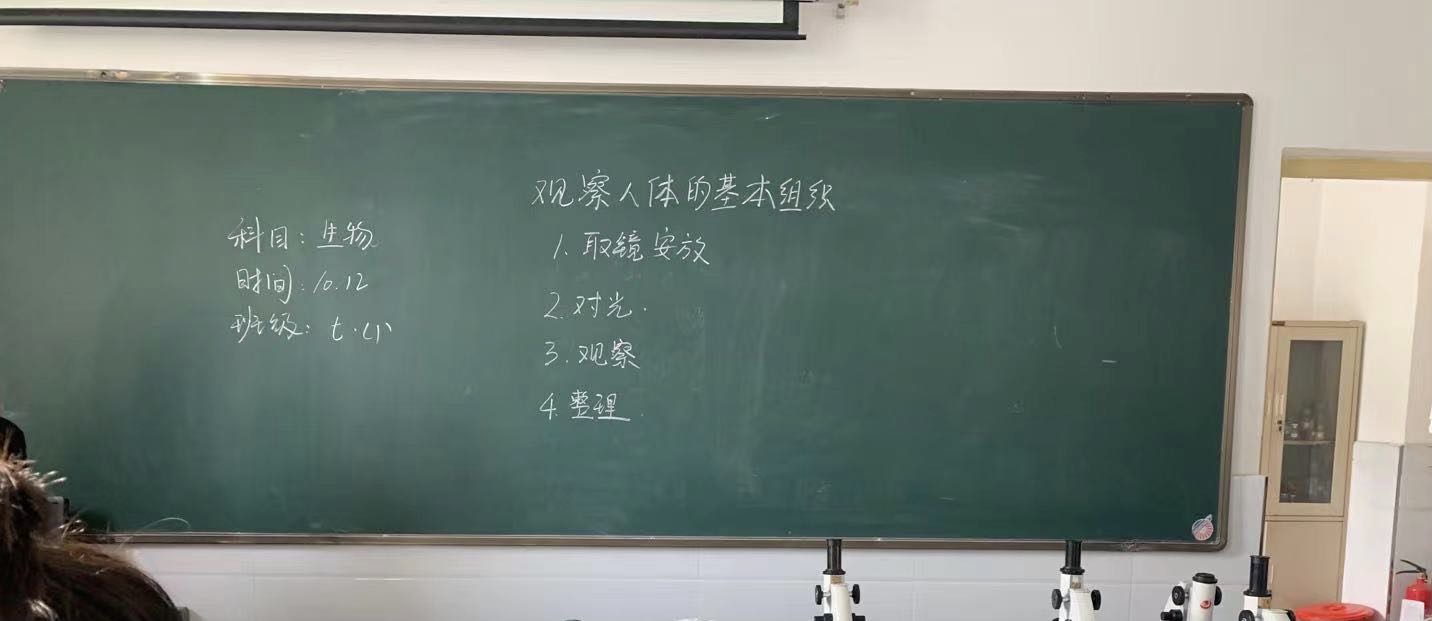 观察人体的基本组织
科目：生物
时间：10.12
班级：七.(1)
1.取镜安放
2.对光.
3.观察
4.整理.